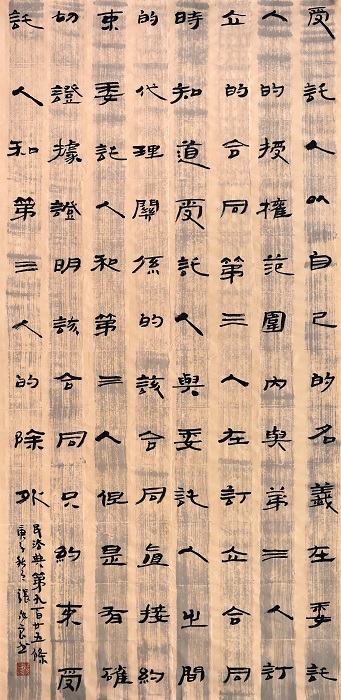 受託人以自己的名義在委託
人的授權范圍内與第三人訂
立的合同第三人在訂立合同
時知道受託人與委託人之間
的代理關係的該合同直接約
束委託人和第三人但是有確
切證據證明該合同只約束受
託人和第三人的除外
民法典第九百廿五條
庚子秋張書